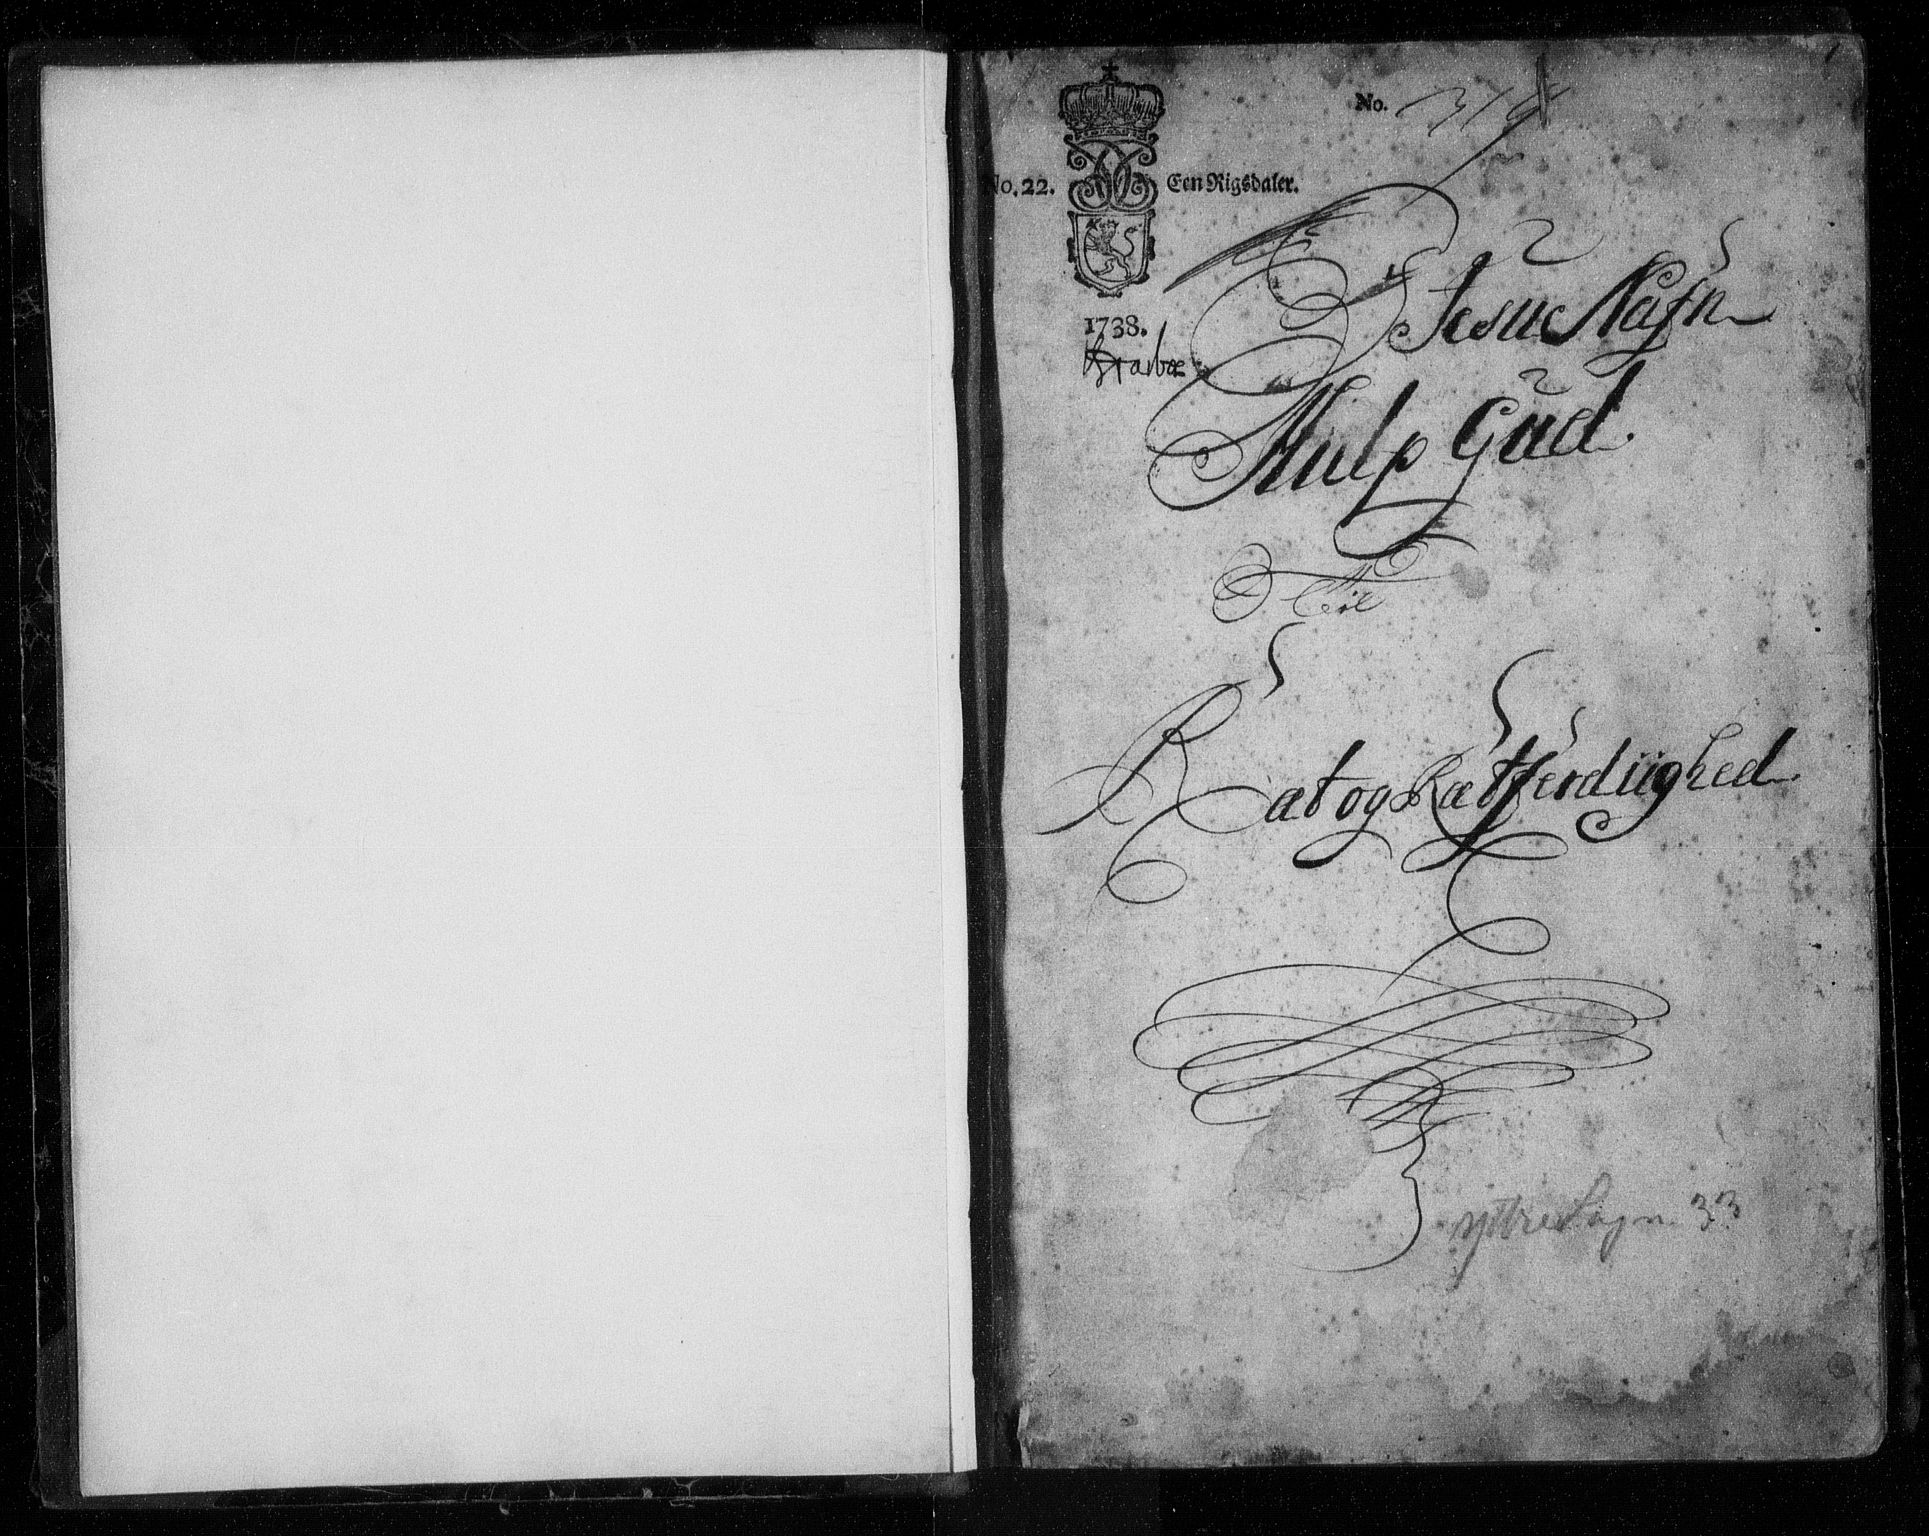 No. 319
No. 22. Een Rigsdaler.
1738.
I Jesu Nafn
Hielp Gud
Til
Ræt og Rætferdiighed
Yttre Sogn 33